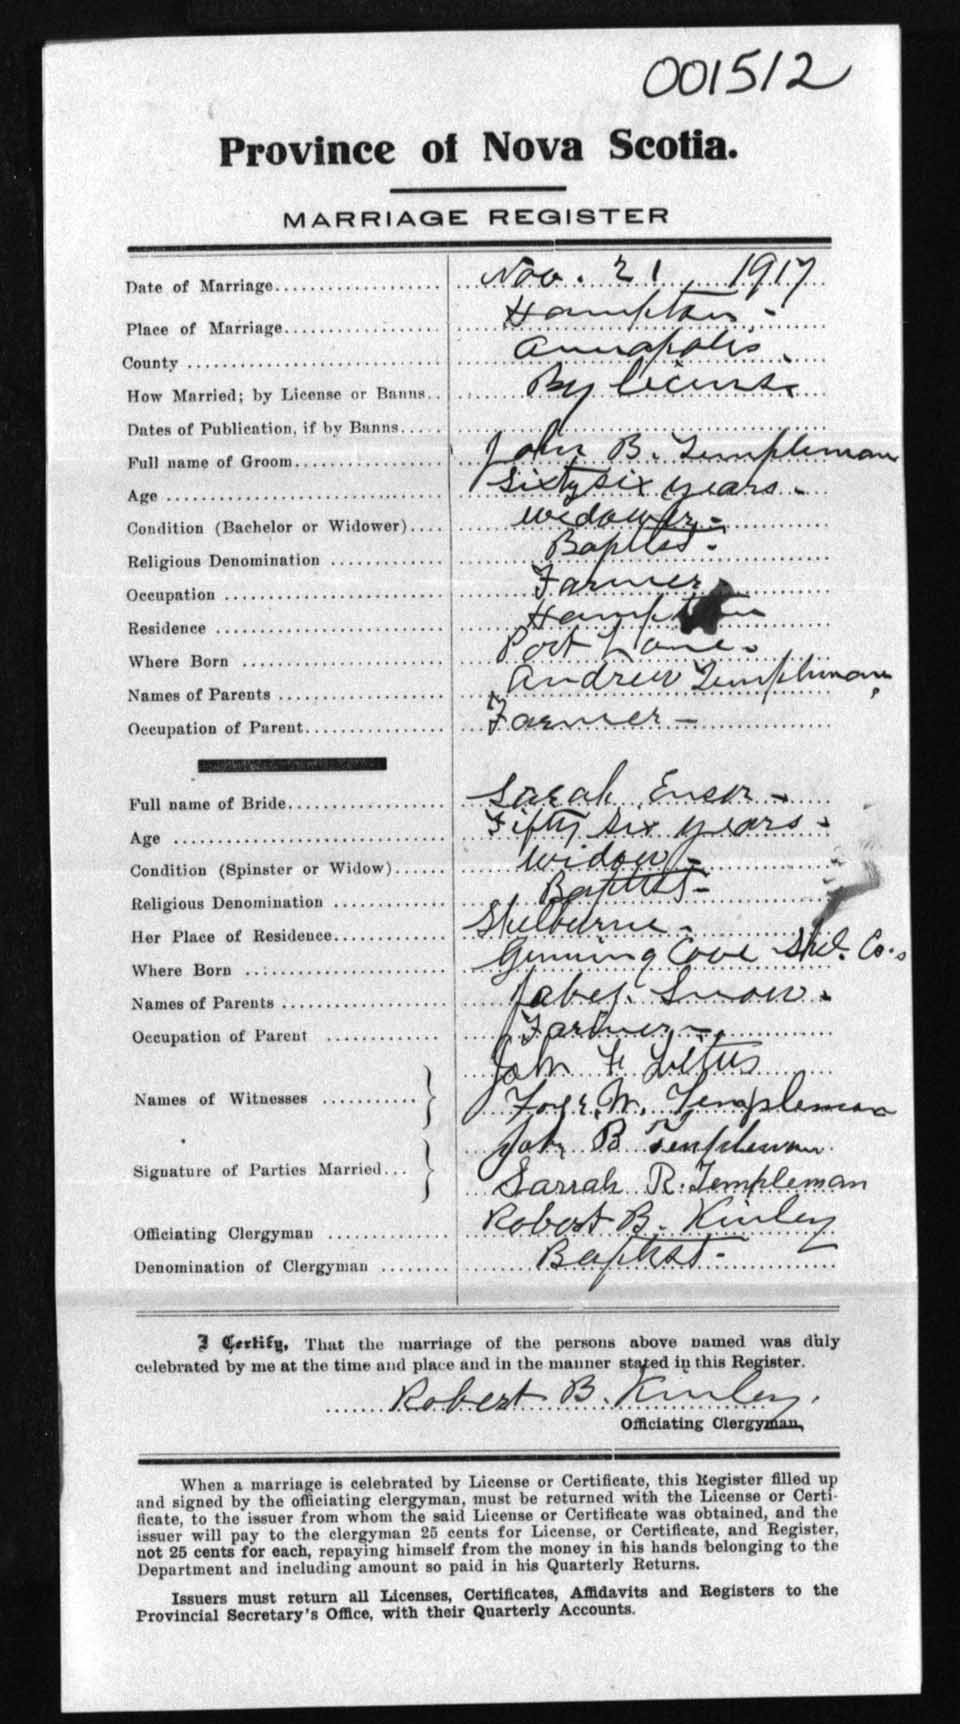 001512
Province of Nova Scotia.
MARRIAGE REGISTER
Date of Marriage Nov. 21 1917
Place of Marriage Hampton -
County Annapolis
How Married; by License or Banns By license
Dates of Publication, if by Banns
Full name of Groom John B. Templeman
Age Sixty six years -
Condition (Bachelor or Widower) widower -
Religious Denomination Baptist -
Occupation Farmer
Residence Hampton
Where Born Port Lorne -
Names of Parents Andrew Templeman,
Occupation of Parent Farmer -
Full name of Bride Sarah Ensor -
Age Fifty six years -
Condition (Spinster or Widow) widow -
Religious Denomination Baptist -
Her Place of Residence Shelburne -
Where Born Gunning Cove Shel. Co.
Names of Parents Jabez Snow -
Occupation of Parent Farmer -
John F
Names of Witnesses
M. Templeman
John B Templeman
Signature of Parties Married
Sarrah R. Templeman
Officiating Clergyman Robert B. Kinley
Denomination of Clergyman Baptist -
I Certify, That the marriage of the persons above named was duly
celebrated by me at the time and place and in the manner stated in this Register.
Robert B. Kinley.
Officiating Clergyman,
When a marriage is celebrated by License or Certificate, this Register filled up
and signed by the officiating clergyman, must be returned with the License or Certi-
ficate, to the issuer from whom the said License or Certificate was obtained, and the
issuer will pay to the clergyman 25 cents for License, or Certificate, and Register,
not 25 cents for each, repaying himself from the money in his hands belonging to the
Department and including amount so paid in his Quarterly Returns.
Issuers must return all Licenses, Certificates, Affidavits and Registers to the
Provincial Secretary's Office, with their Quarterly Accounts.